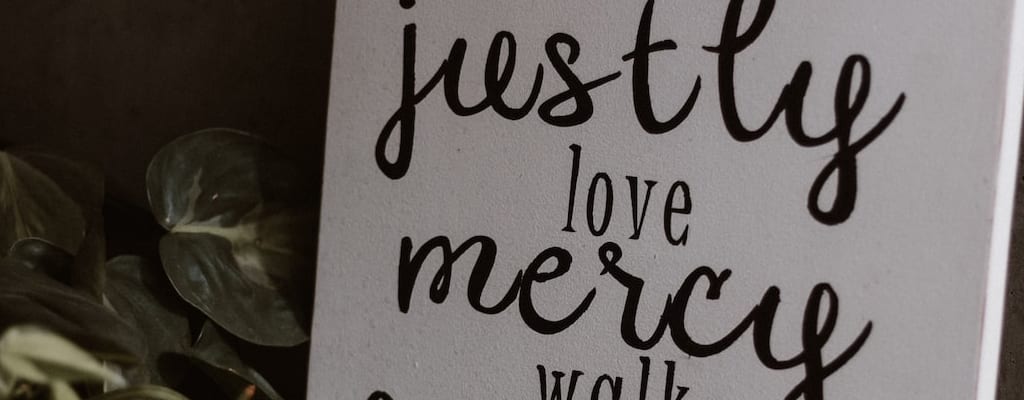 justly
love
mercy
walk